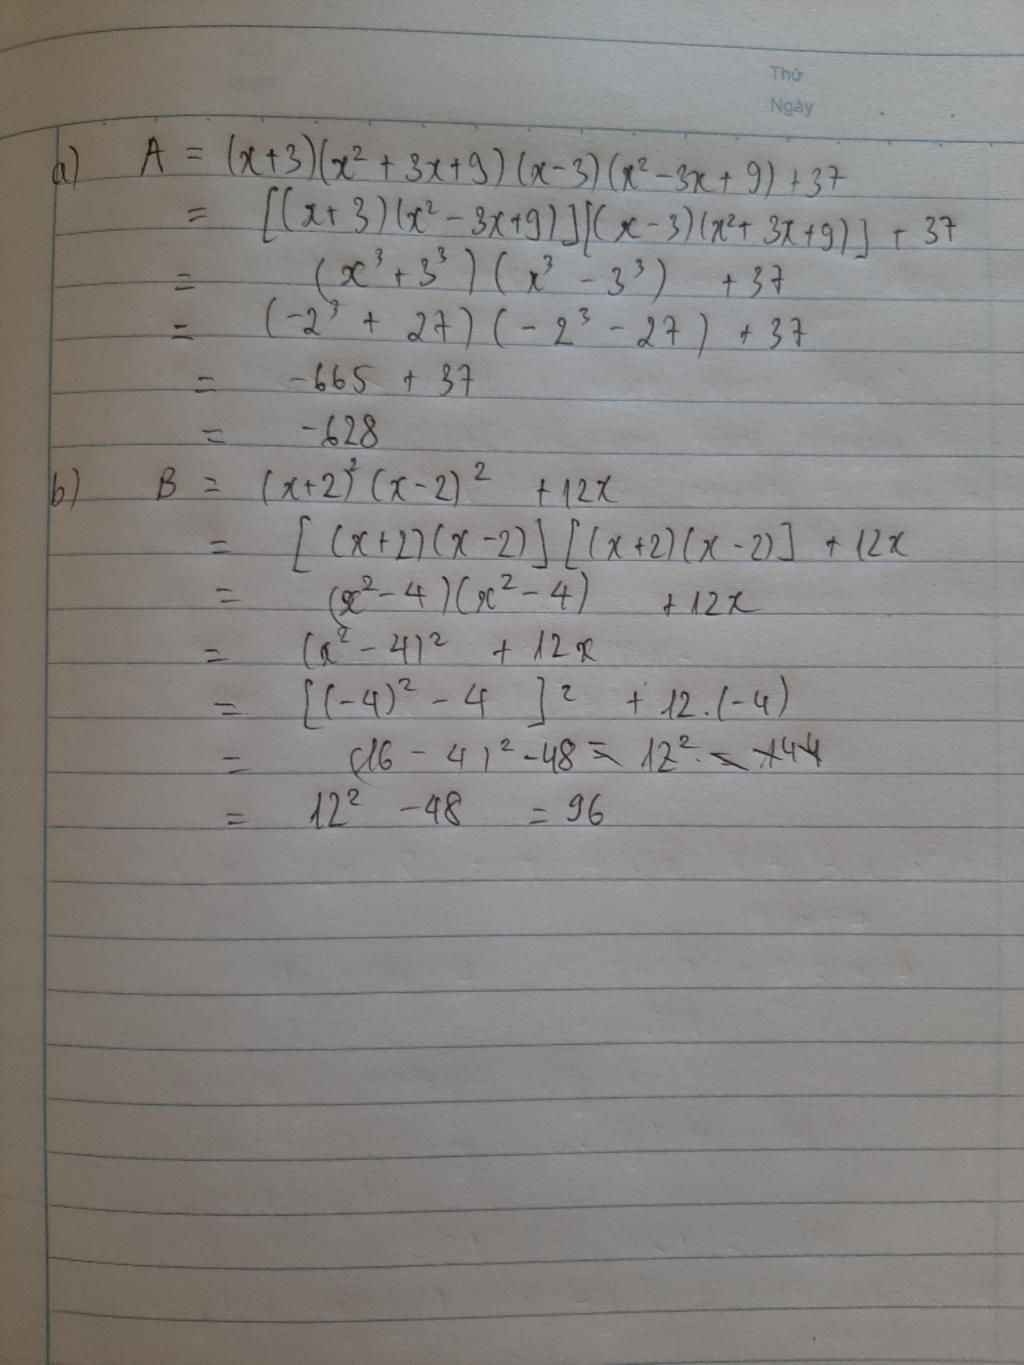 Thứ
Ngày
a) A = (x+3)(x² + 3x+9)(x-3)(x² -3x + 9) +37
= [(x+3)(x² - 3x+9)][(x-3)(x²+ 3x+9)] + 37
= (x³ + 3³)(x³ - 3³) + 37
= (-2³ + 27)(-2³ - 27) + 37
= -665 + 37
= -628
b) B = (x+2)²(x-2)² +12x
= [(x+2)(x-2)][(x+2)(x-2)] + 12x
= (x²-4)(x²-4) +12x
= (x² - 4)² + 12x
= [(-4)² - 4 ]² + 12.(-4)
= (16 - 4)² -48 = 12² = 144
= 12² -48 = 96